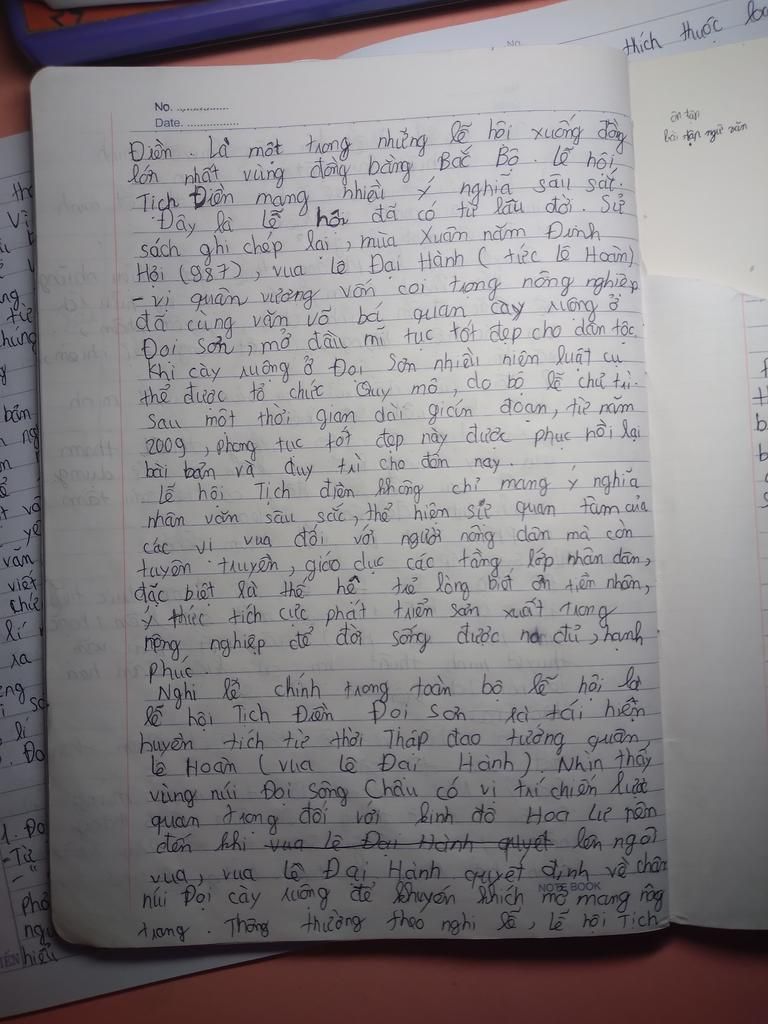 No. ................
Date. ................
thích thuốc
ôn tập
bài tập ngữ văn
Điền. Là một trong những lễ hội xuống đồng
lớn nhất vùng đồng bằng Bắc Bộ. Lễ hội
Tịch Điền mang nhiều ý nghĩa sâu sắc.
Đây là lễ hội đã có từ lâu đời. Sử
sách ghi chép lại, mùa Xuân năm Đinh
Hội (987), vua Lê Đại Hành (tức Lê Hoàn)
- vị quân vương vốn coi trọng nông nghiệp
đã cùng văn võ bá quan cày ruộng ở
Đọi Sơn, mở đầu mĩ tục tốt đẹp cho dân tộc.
Khi cày ruộng ở Đọi Sơn nhiều hiện luật cụ
thể được tổ chức Quy mô, do bộ lễ chủ trì.
Sau một thời gian dài gián đoạn, từ năm
2009, phong tục tốt đẹp này được phục hồi lại
bài bản và duy trì cho đến nay.
Lễ hội Tịch điền không chỉ mang ý nghĩa
nhân văn sâu sắc, thể hiện sự quan tâm của
các vị vua đối với người nông dân mà còn
tuyên truyền, giáo dục các tầng lớp nhân dân,
đặc biệt là thế hệ trẻ lòng biết ơn tiền nhân,
ý thức tích cực phát triển sản xuất trong
nông nghiệp để đời sống được no đủ, hạnh
phúc.
Nghi lễ chính trong toàn bộ lễ hội là
lễ hội Tịch Điền Đọi Sơn là tái hiện
huyền tích từ thời Thập đạo tướng quân
Lê Hoàn (vua Lê Đại Hành) Nhìn thấy
vùng núi Đọi sông Châu có vị trí chiến lược
quan trọng đối với kinh đô Hoa Lư nên
đến khi vua Lê Đại Hành quyết lên ngôi
vua, vua Lê Đại Hành quyết định về chân
núi Đọi cày ruộng để khuyến khích mở mang nông
NOTE BOOK
trang. Thông thường theo nghi lễ, lễ hội Tịch